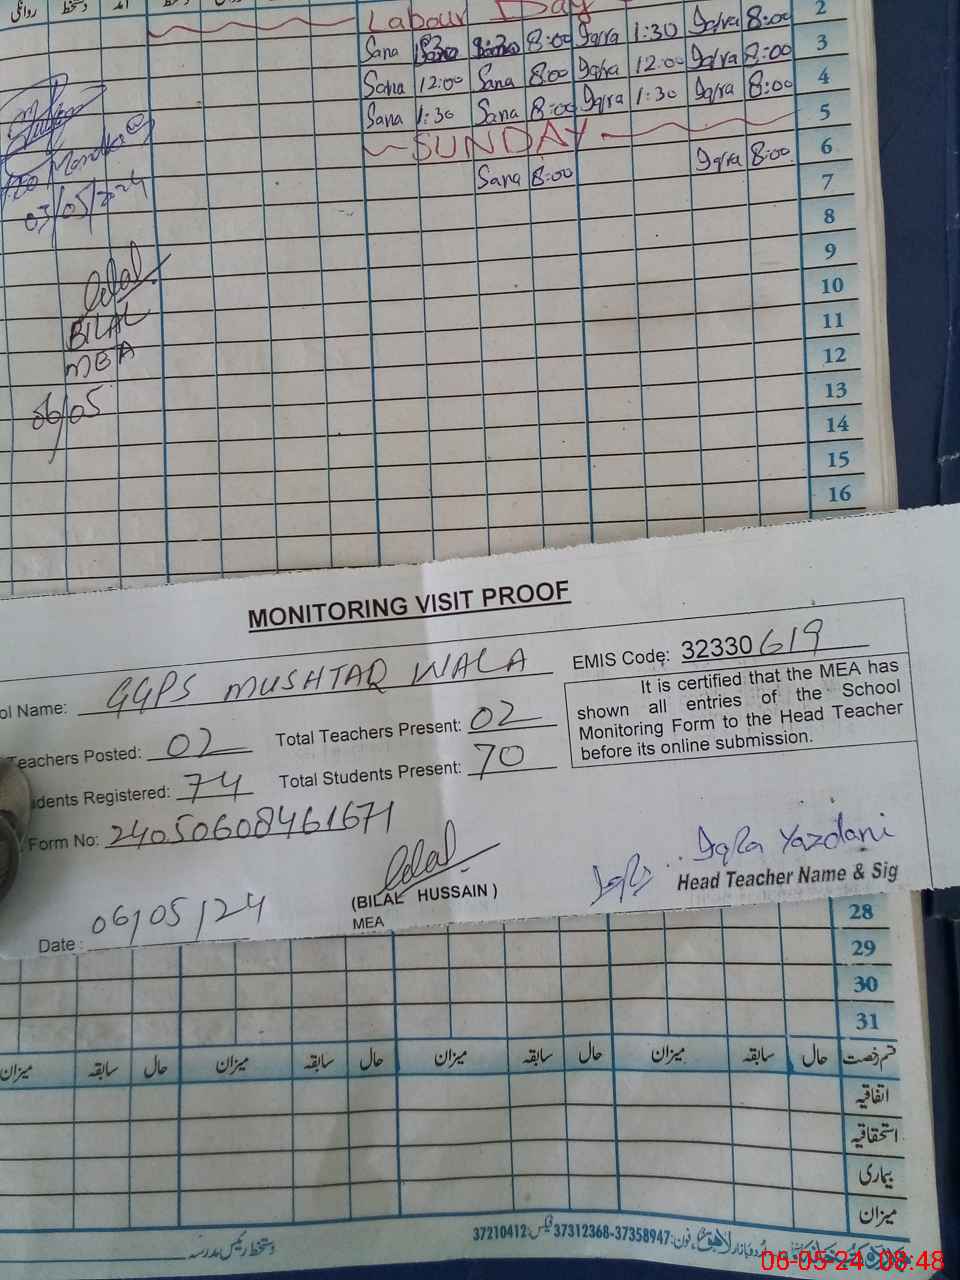 روانگی دستخط آمد
Labour Day
2
Sana 8:00 Iqra 1:30 Iqra 8:00
3
Sana 12:00 Sana 8:00 Iqra 12:00 Iqra 8:00
4
Sana 1:30 Sana 8:00 Iqra 1:30 Iqra 8:00
5
SUNDAY
6
Sana 8:00 Iqra 8:00
7
8
9
10
11
12
13
14
15
16
03/05/2024
Bilal
BILAL
MEA
06/05
MONITORING VISIT PROOF
ol Name: GGPS MUSHTAQ WALA
EMIS Code: 32330619
Teachers Posted: 02
Total Teachers Present: 02
udents Registered: 74
Total Students Present: 70
Form No: 24050608461671
It is certified that the MEA has
shown all entries of the School
Monitoring Form to the Head Teacher
before its online submission.
Bilal
(BILAL HUSSAIN)
MEA
Iqra Yazdani
Head Teacher Name & Sig
Date: 06/05/24
28
29
30
31
قسم رخصت حال سابقہ میزان حال سابقہ میزان حال سابقہ میزان حال سابقہ میزان
اتفاقیہ
استحقاقیہ
بیماری
میزان
اردو بازار لاہور فون: 37358947-37312368 فیکس: 37210412
دستخط رئیس مدرسہ
06-05-24 08:48